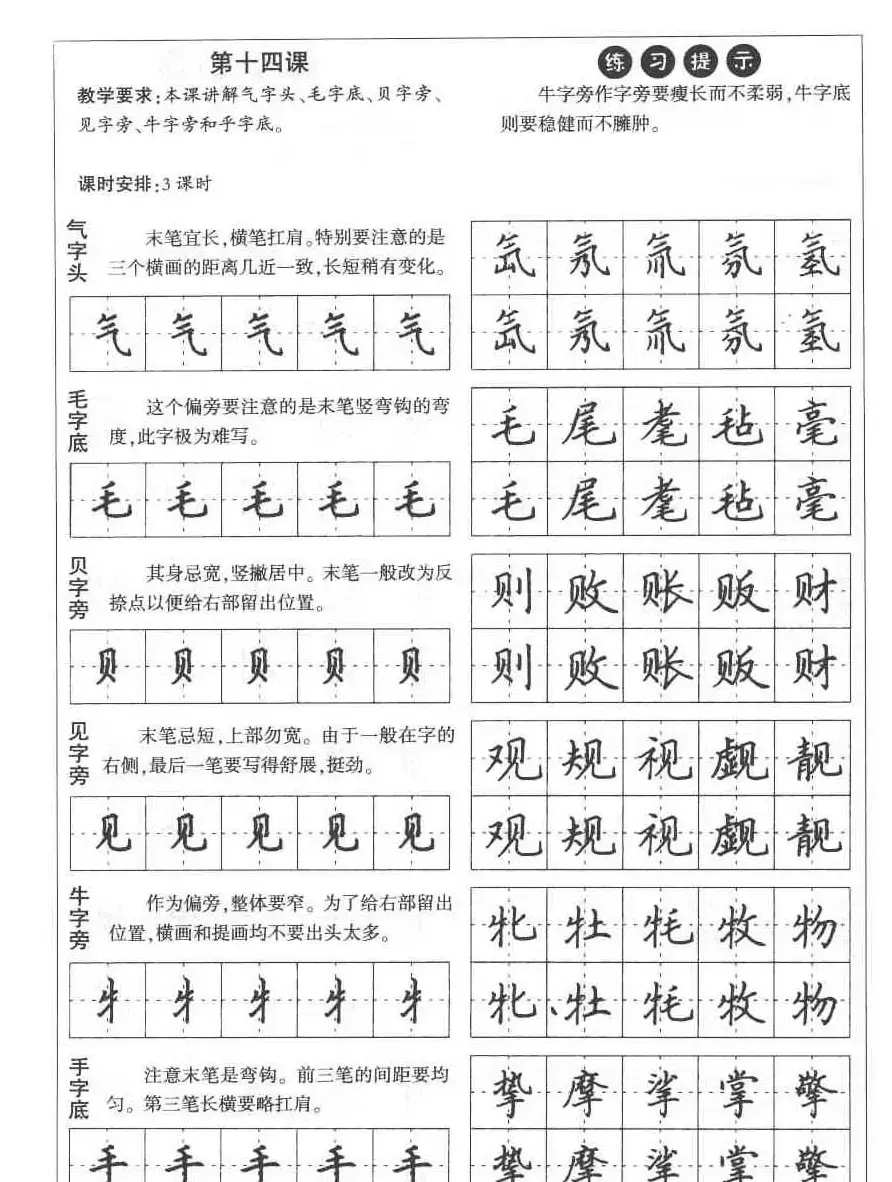 第十四课
教学要求:本课讲解气字头、毛字底、贝字旁、
见字旁、牛字旁和乎字底。
课时安排:3课时
练习提示
牛字旁作字旁要瘦长而不柔弱,牛字底
则要稳健而不臃肿。
气字头
末笔宜长,横笔扛肩。特别要注意的是
三个横画的距离几近一致,长短稍有变化。
气 气 气 气 气
氙 氖 氚 氛 氢
氙 氖 氚 氛 氢
毛字底
这个偏旁要注意的是末笔竖弯钩的弯
度,此字极为难写。
毛 毛 毛 毛 毛
毛 尾 耄 毡 毫
毛 尾 耄 毡 毫
贝字旁
其身忌宽,竖撇居中。末笔一般改为反
捺点以便给右部留出位置。
贝 贝 贝 贝 贝
则 败 账 贩 财
则 败 账 贩 财
见字旁
末笔忌短,上部勿宽。由于一般在字的
右侧,最后一笔要写得舒展,挺劲。
见 见 见 见 见
观 规 视 觑 靓
观 规 视 觑 靓
牛字旁
作为偏旁,整体要窄。为了给右部留出
位置,横画和提画均不要出头太多。
牜 牜 牜 牜 牜
牝 牡 牦 牧 物
牝 牡 牦 牧 物
手字底
注意末笔是弯钩。前三笔的间距要均
匀。第三笔长横要略扛肩。
手 手 手 手 手
挚 摩 挲 掌 擎
挚 摩 挲 掌 擎